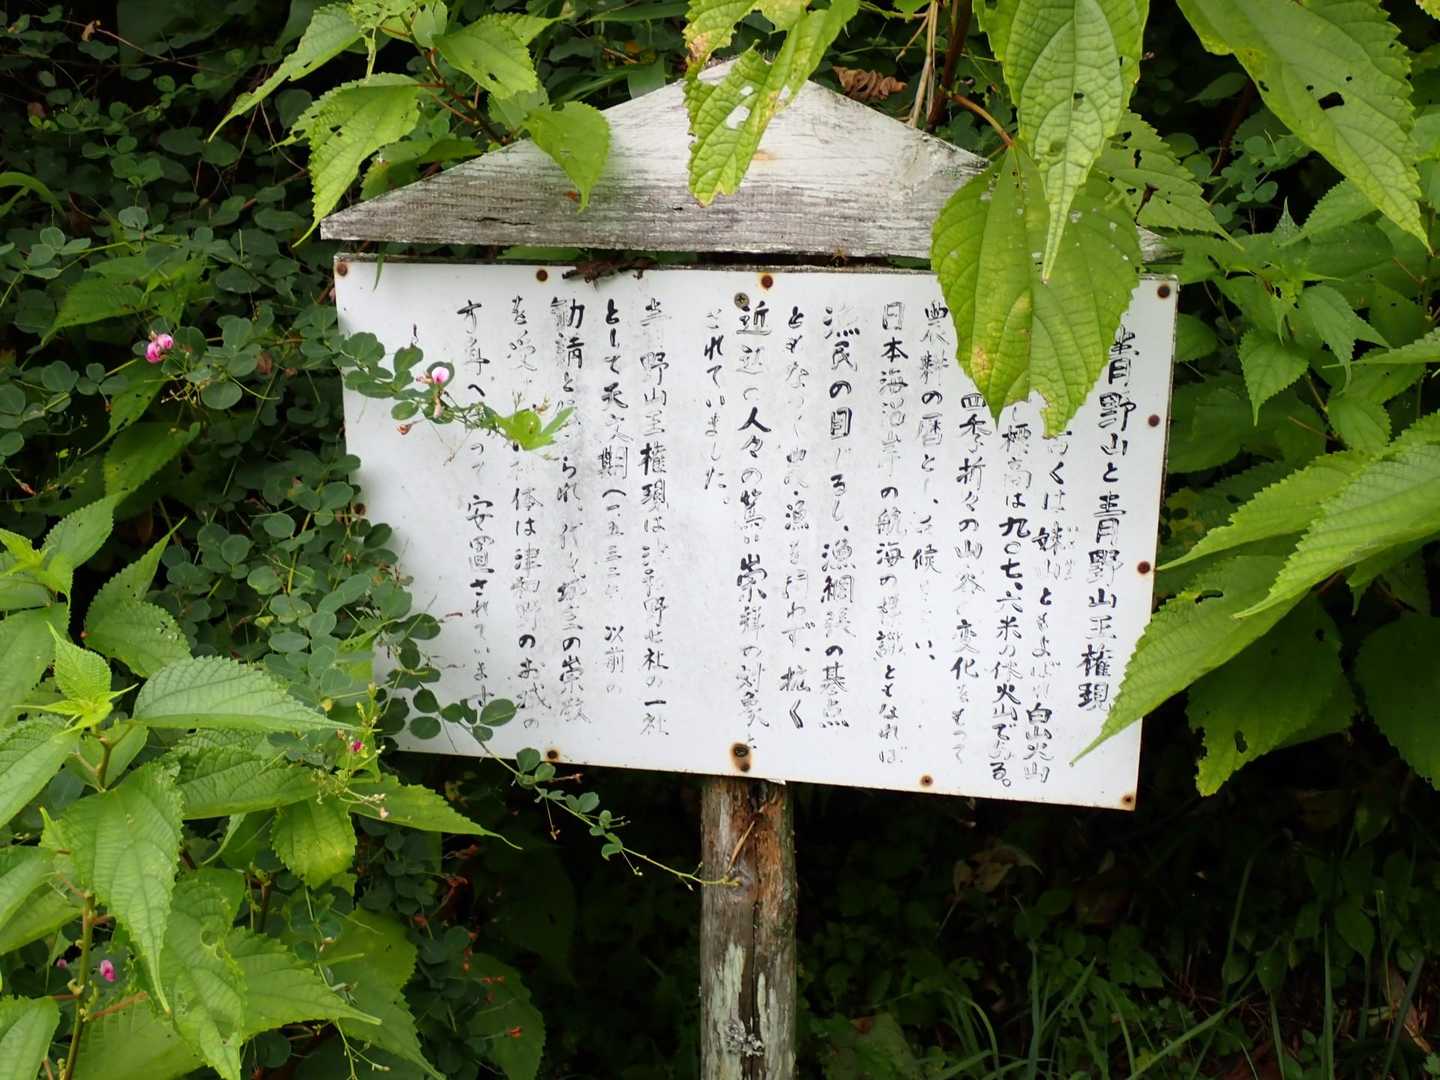 青野山と青野山王権現
くは妹山ともよばれ白山火山
し標高は九〇七、六米の休火山である。
四季折々の山容の変化をもって
農耕の暦とし、
日本海沿岸の航海の標識ともなれば
漁民の目じるし、漁網張の基点
ともなって農・漁を問わず、拡く
近辺の人々の篤い崇拝の対象と
されていました。
青野山王権現は津和野七社の一社
として天文期(一五三二年)以前の
勧請と られ、代々城主の崇敬
を受 体は津和野のお城の
って安置されています。